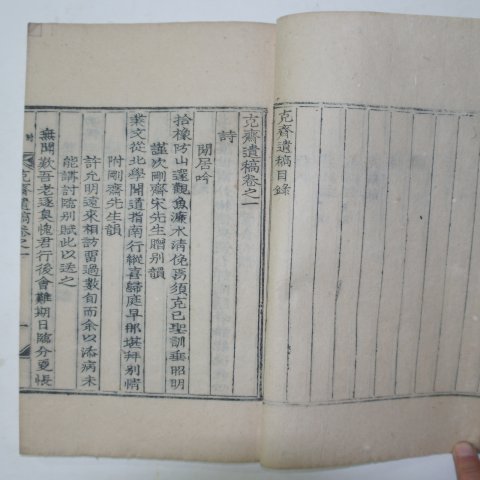 克齋遺稿目錄
克齋遺稿卷之一
詩
閒居吟
拾橡防山邃觀魚濂水清俛焉須克己聖訓垂昭明
謹次剛齋宋先生贈別韻
業文從北學聞道指南行縱喜歸庭早那堪拜別情
附剛齋先生韻
許允明遠來相訪留過數旬而余以添病未
能講討臨別賦此以送之
無聞歎吾老逐臭愧君行後會難期日臨分更悵
克齋遺稿卷之一
一